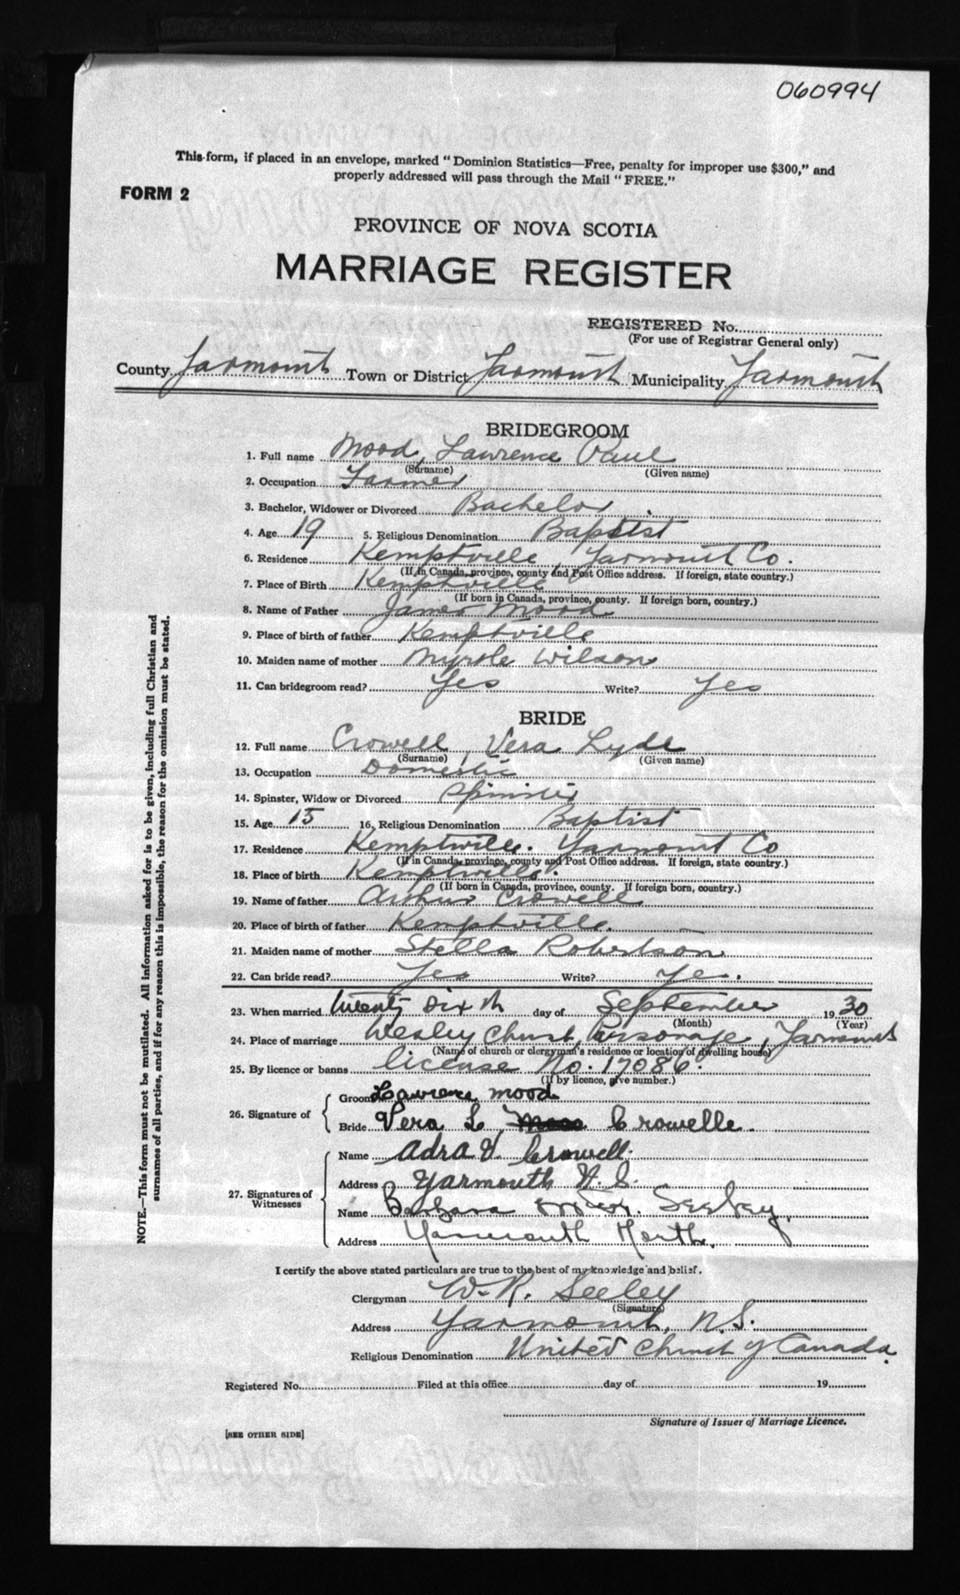 060994
This form, if placed in an envelope, marked "Dominion Statistics—Free, penalty for improper use $300," and
properly addressed will pass through the Mail "FREE."
FORM 2
PROVINCE OF NOVA SCOTIA
MARRIAGE REGISTER
REGISTERED No.
(For use of Registrar General only)
County Yarmouth Town or District Yarmouth Municipality Yarmouth
BRIDEGROOM
1. Full name Mood, Lawrence Paul
(Surname) (Given name)
2. Occupation Farmer
3. Bachelor, Widower or Divorced Bachelor
4. Age 19 5. Religious Denomination Baptist
6. Residence Kemptville, Yarmouth Co.
(If in Canada, province, county and Post Office address. If foreign, state country.)
7. Place of Birth Kemptville
(If born in Canada, province, county. If foreign born, country.)
8. Name of Father James Mood
9. Place of birth of father Kemptville
10. Maiden name of mother Myrtle Wilson
11. Can bridegroom read? Yes Write? Yes
BRIDE
12. Full name Crowell, Vera Lyde
(Surname) (Given name)
13. Occupation Domestic
14. Spinster, Widow or Divorced Spinster
15. Age 15 16. Religious Denomination Baptist
17. Residence Kemptville. Yarmouth Co
(If in Canada, province, county and Post Office address. If foreign, state country.)
18. Place of birth Kemptville.
(If born in Canada, province, county. If foreign born, country.)
19. Name of father Arthur Crowell
20. Place of birth of father Kemptville.
21. Maiden name of mother Stella Robertson
22. Can bride read? Yes Write? Ye.
23. When married twenty sixth day of September 1930
(Month) (Year)
24. Place of marriage Wesley Church, Parsonage, Yarmouth
(Name of church or clergyman's residence or location of dwelling house)
25. By licence or banns license No. 17086.
(If by licence, give number.)
26. Signature of
Groom Lawrence mood
Bride Vera L Crowelle.
27. Signatures of Witnesses
Name Adra V. Crowell.
Address Yarmouth N.S.
Name Barbara Seeley.
Address Yarmouth North.
I certify the above stated particulars are true to the best of my knowledge and belief.
Clergyman W. R. Seeley
(Signature)
Address Yarmouth, N.S.
Religious Denomination United Church of Canada.
Registered No. Filed at this office day of 19
Signature of Issuer of Marriage Licence.
[SEE OTHER SIDE]
NOTE.—This form must not be mutilated. All information asked for is to be given, including full Christian and
surnames of all parties, and if for any reason this is impossible, the reason for the omission must be stated.